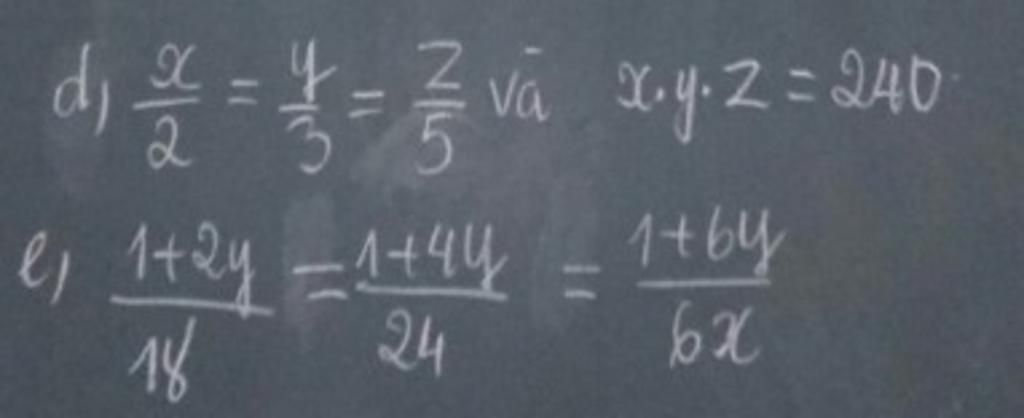 d, x/2 = y/3 = z/5 và x.y.z = 240
e, 1+2y/18 = 1+4y/24 = 1+6y/6x